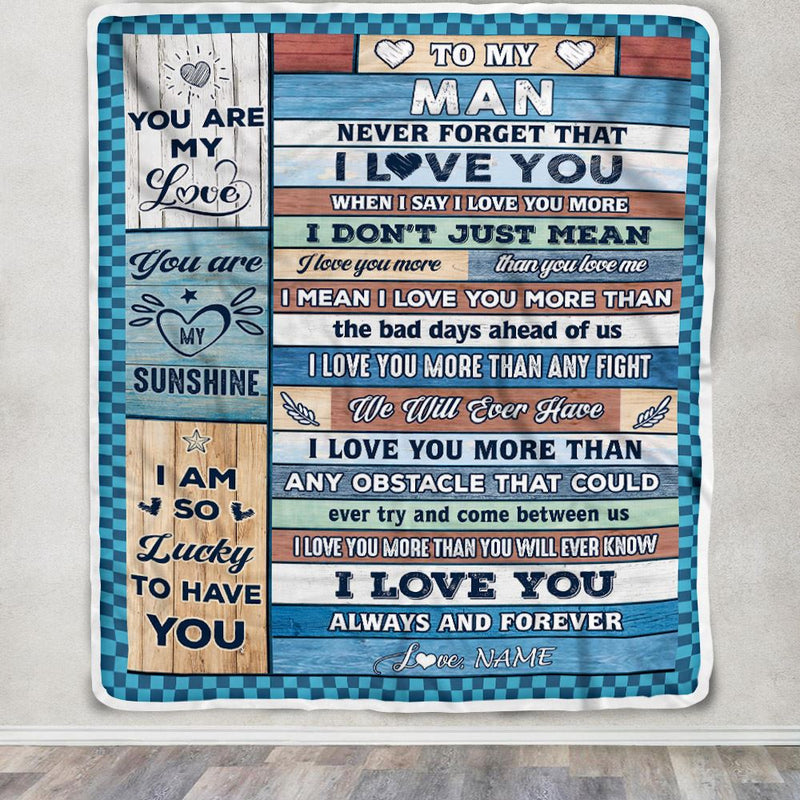 YOU ARE
MY
Love
You are
MY
SUNSHINE
I AM
SO
Lucky
TO HAVE
YOU
TO MY
MAN
NEVER FORGET THAT
I LOVE YOU
WHEN I SAY I LOVE YOU MORE
I DON'T JUST MEAN
I love you more than you love me
I MEAN I LOVE YOU MORE THAN
the bad days ahead of us
I LOVE YOU MORE THAN ANY FIGHT
We Will Ever Have
I LOVE YOU MORE THAN
ANY OBSTACLE THAT COULD
ever try and come between us
I LOVE YOU MORE THAN YOU WILL EVER KNOW
I LOVE YOU
ALWAYS AND FOREVER
Love, NAME